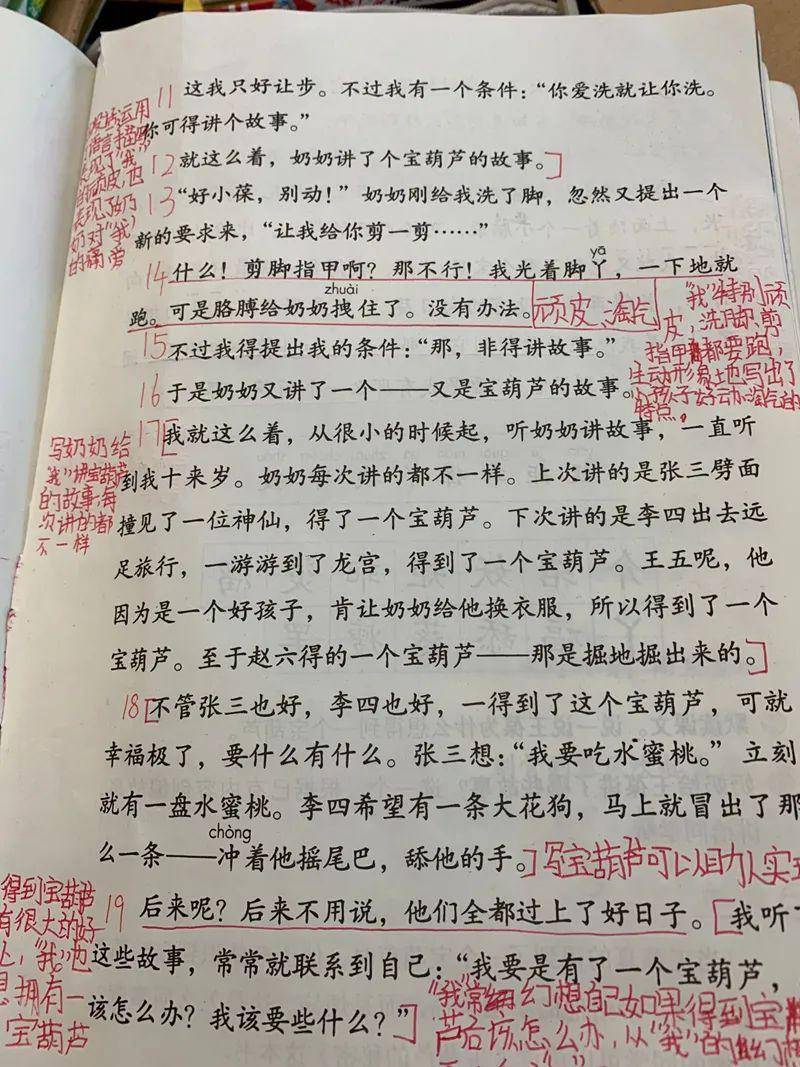 11 这我只好让步。不过我有一个条件：“你爱洗就让你洗。
你可得讲个故事。”
12 就这么着，奶奶讲了个宝葫芦的故事。]
13 “好小葆，别动！”奶奶刚给我洗了脚，忽然又提出一个
新的要求来，“让我给你剪一剪……”
yā
14 什么！剪脚指甲啊？那不行！我光着脚丫，一下地就
zhuài
跑。可是胳膊给奶奶拽住了。没有办法。
顽皮、淘气
15 不过我得提出我的条件：“那，非得讲故事。”
16 于是奶奶又讲了一个——又是宝葫芦的故事。
“我”特别顽
皮，洗脚、剪
指甲都要跑，
生动形象地写出了
小孩子好动淘气的
特点。
运用
语言描
表现了“我”
的顽皮，也
表现了奶
奶对“我”
的疼爱
17 [我就这么着，从很小的时候起，听奶奶讲故事，一直听
到我十来岁。奶奶每次讲的都不一样。上次讲的是张三劈面
撞见了一位神仙，得了一个宝葫芦。下次讲的是李四出去远
足旅行，一游游到了龙宫，得到了一个宝葫芦。王五呢，他
因为是一个好孩子，肯让奶奶给他换衣服，所以得到了一个
宝葫芦。至于赵六得的一个宝葫芦——那是掘地掘出来的。]
写奶奶给
“我”讲宝葫芦
的故事，每
次讲的都
不一样
18 [不管张三也好，李四也好，一得到了这个宝葫芦，可就
幸福极了，要什么有什么。张三想：“我要吃水蜜桃。”立刻
就有一盘水蜜桃。李四希望有一条大花狗，马上就冒出了那
chòng
么一条——冲着他摇尾巴，舔他的手。]写宝葫芦可以助人实现
19 后来呢？后来不用说，他们全都过上了好日子。[我听了
这些故事，常常就联系到自己：“我要是有了一个宝葫芦，
该怎么办？我该要些什么？”]
得到宝葫芦
有很大的好
处，“我”也
想拥有一
宝葫芦
“我”常幻想自己如果得到宝葫
芦后该怎么办，从“我”的幻想